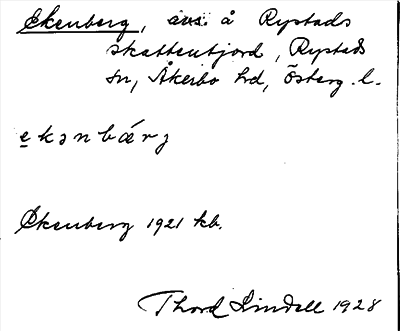 Ekenberg, avs. å Rystads
skatteutjord, Rystads
sn, Åkerbo hd, Österg. l.
ekənbærj
Ekenberg 1921 kb.
Thord Lindell 1928